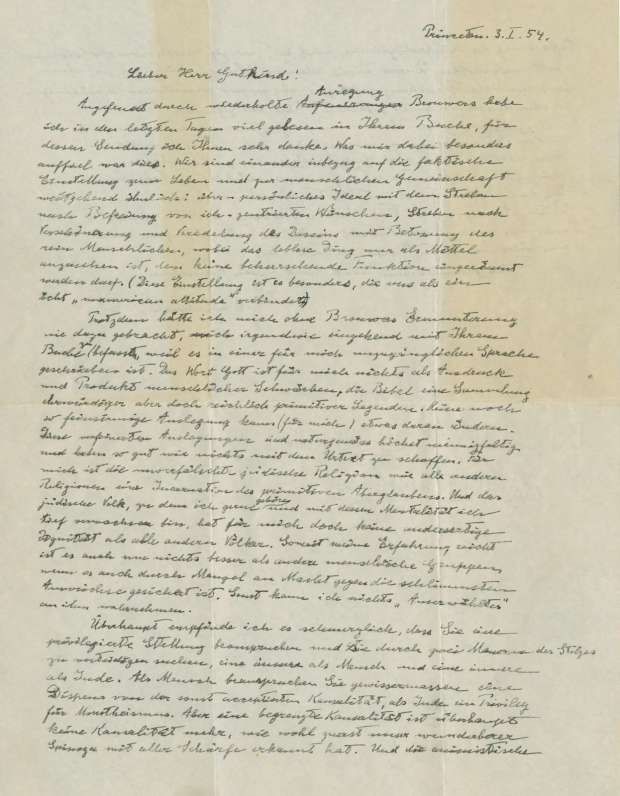 Princeton. 3. I. 54.
Lieber Herr Gutkind!
Anregung
Angefeuert durch wiederholte Brouwers habe
ich in den letzten Tagen viel gelesen in Ihrem Buche, für
dessen Sendung ich Ihnen sehr danke. Was mir dabei besonders
auffiel war dies. Wir sind einander inbezug auf die faktische
Einstellung zum Leben und zur menschlichen Gemeinschaft
weitgehend ähnlich: persönliches Ideal mit dem Streben
nach Befreiung von ich-zentrierten Wünschen, Streben nach
Verschönerung und Veredelung des Daseins mit Betonung des
rein Menschlichen, wobei das leblose Ding nur als Mittel
anzusehen ist, dem keine beherrschende Funktion eingeräumt
werden darf. (Diese Einstellung ist es besonders, die uns als ein
echt „unamerican attitude" verbindet)
Trotzdem hätte ich mich ohne Brouwers Ermunterung
nie dazu gebracht, mich irgendwie eingehend mit Ihrem
Buche zu befassen, weil es in einer für mich unzugänglichen Sprache
geschrieben ist. Das Wort Gott ist für mich nichts als Ausdruck
und Produkt menschlicher Schwächen, die Bibel eine Sammlung
ehrwürdiger aber doch reichlich primitiver Legenden. Keine noch
so feinsinnige Auslegung kann (für mich) etwas daran ändern.
Diese verfeinerten Auslegungen sind naturgemäss höchst mannigfaltig
und haben so gut wie nichts mit dem Urtext zu schaffen. Für
mich ist die unverfälschte jüdische Religion wie alle anderen
Religionen eine Incarnation des primitiven Aberglaubens. Und das
jüdische Volk, zu dem ich gerne gehöre und mit dessen Mentalität ich
tief verwachsen bin, hat für mich doch keine andersartige
Dignität als alle anderen Völker. Soweit meine Erfahrung reicht
ist es auch um nichts besser als andere menschliche Gruppen,
wenn es auch durch Mangel an Macht gegen die schlimmsten
Auswüchse gesichert ist. Sonst kann ich nichts „Auserwähltes"
an ihm wahrnehmen.
Überhaupt empfinde ich es schmerzlich, dass Sie eine
privilegierte Stellung beanspruchen und sie durch zwei Mauern des Stolzes
zu verteidigen suchen, eine äussere als Mensch und eine innere
als Jude. Als Mensch beanspruchen Sie gewissermassen eine
Dispens von der sonst acceptierten Kausalität, als Jude ein Privileg
für Monotheismus. Aber eine begrenzte Kausalität ist überhaupt
keine Kausalität mehr, wie wohl zuerst unser wunderbarer
Spinoza mit aller Schärfe erkannt hat. Und die animistische